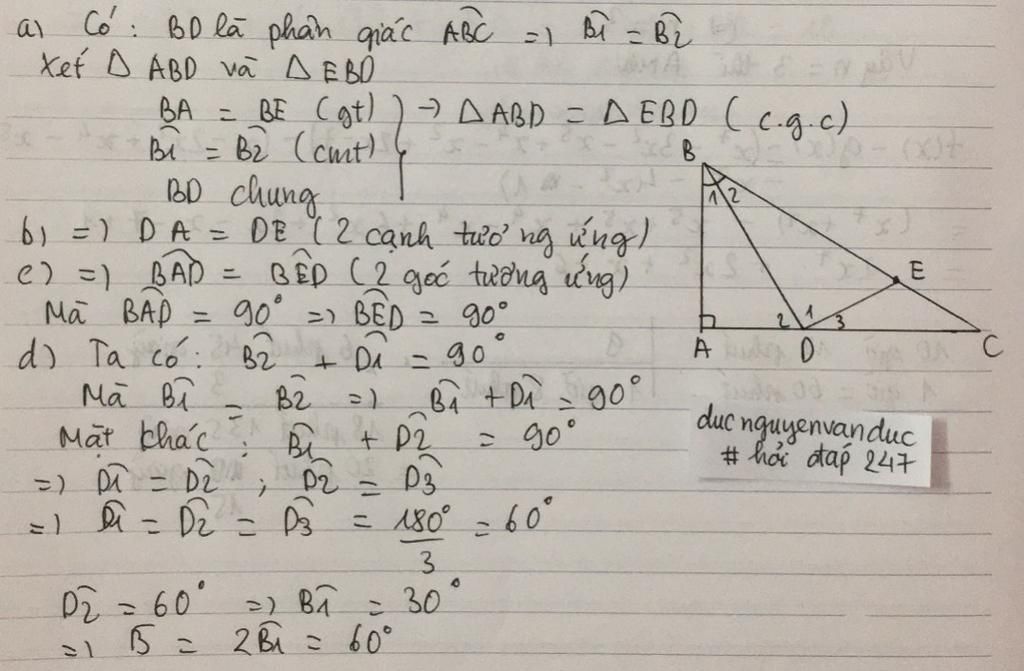 a) Có: BD là phân giác ABC => B1 = B2
Xét Δ ABD và Δ EBD
BA = BE (gt)
B1 = B2 (cmt)
BD chung
→ Δ ABD = Δ EBD (c.g.c)
b) => DA = DE (2 cạnh tương ứng)
c) => BAD = BED (2 góc tương ứng)
Mà BAD = 90° => BED = 90°
d) Ta có: B2 + D1 = 90°
Mà B1 = B2 => B1 + D1 = 90°
Mặt khác: B1 + D2 = 90°
=> D1 = D2 ; D2 = D3
=> D1 = D2 = D3 = 180°/3 = 60°
D2 = 60° => B1 = 30°
=> B = 2B1 = 60°
B
1 2
E
2 1 3
A D C
ducnguyenvanduc
# hỏi đáp 247